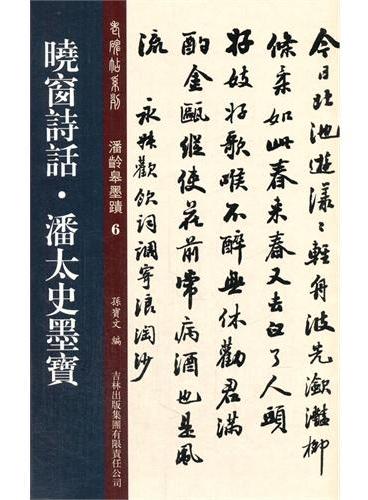 今日北池遊漾〻輕舟波光瀲灩柳
條柔如此春來春又去白了人頭
好妓好歌喉不醉無休勸君滿
酌金甌縱使花前常病酒也是風
流
永叔歡飲詞調寄浪淘沙
老碑帖系列
潘齡皋墨蹟 6
孫寶文 編
吉林出版集團有限責任公司
曉窗詩話·潘太史墨寶